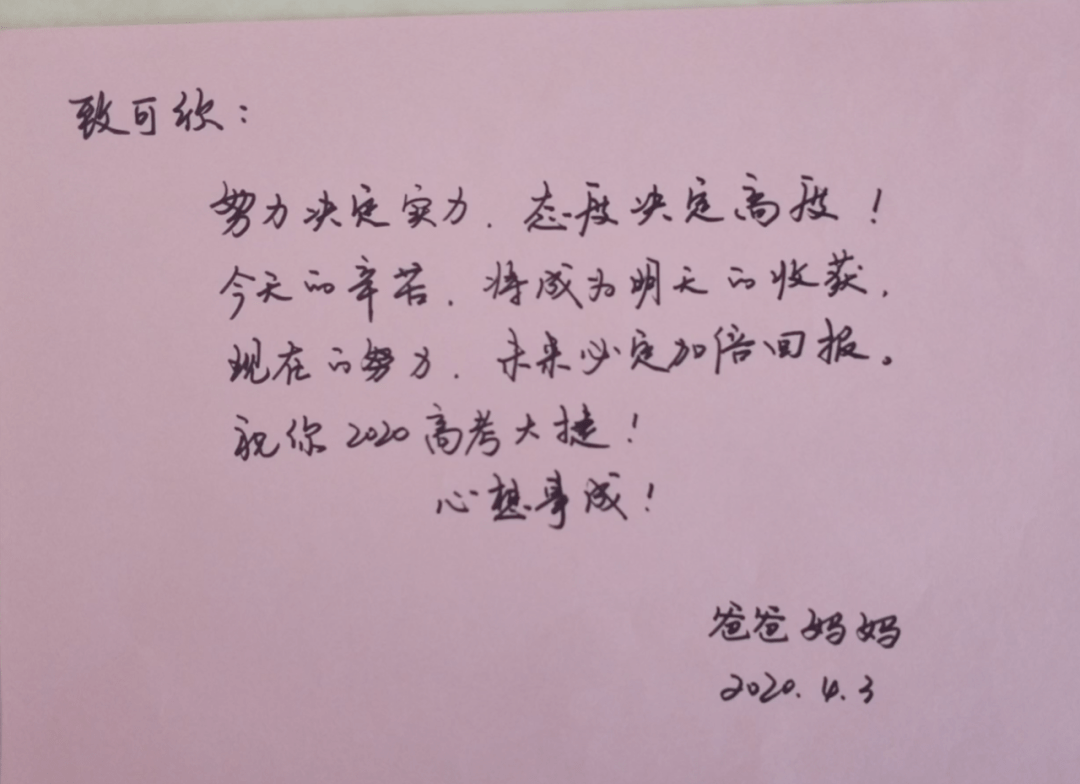 致可欣：
努力决定实力，态度决定高度！
今天的辛苦，将成为明天的收获，
现在的努力，未来必定加倍回报。
祝你2020高考大捷！
心想事成！
爸爸妈妈
2020.4.3